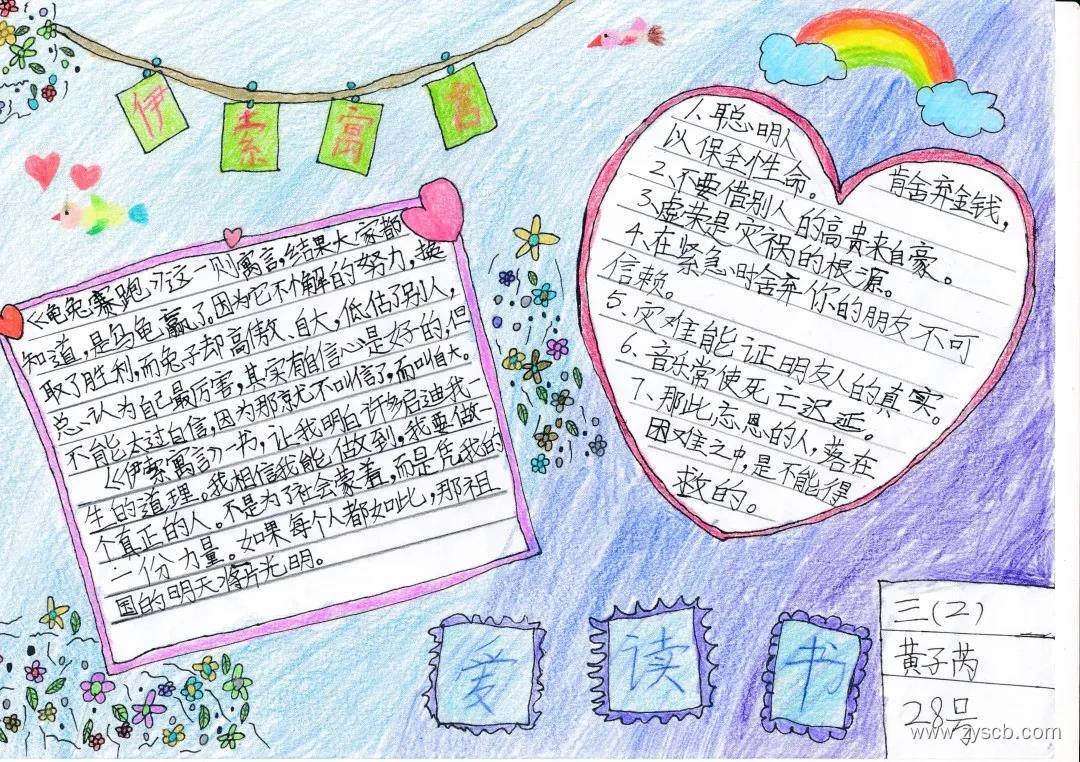 伊索寓言
《龟兔赛跑》这一则寓言,结果大家都
知道,是乌龟赢了。因为它不懈的努力,换
取了胜利,而兔子却高傲、自大,低估了别人,
总认为自己最厉害,其实有自信心是好的,但
不能太过自信,因为那就不叫信了,而叫自大。
《伊索寓言》一书,让我明白许多启迪我一
生的道理。我相信我能做到,我要做一
个真正的人。不是为了社会蒙羞,而是凭我的
一份力量。如果每个人都如此,那祖
国的明天将片光明。
1、聪明人 肯舍弃金钱,
以保全性命。
2、不要借别人的高贵来自豪。
3、虚荣是灾祸的根源。
4、在紧急时舍弃你的朋友不可
信赖。
5、灾难能证明友人的真实。
6、音乐常使死亡迟延。
7、那此忘恩的人,落在
困难之中,是不能得
救的。
爱读书
三(2)
黄子芮
28号
www.zyscb.com